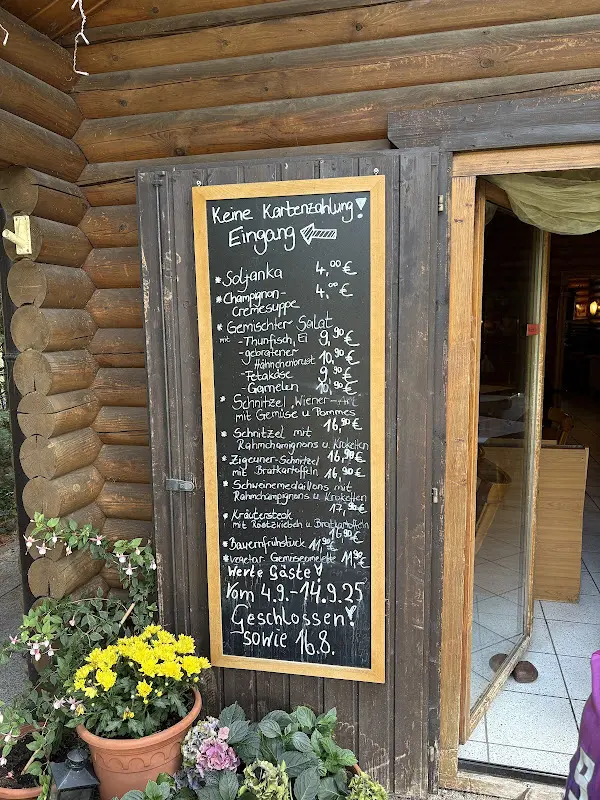 Keine Kartenzahlung!
Eingang
* Soljanka 4,00 €
* Champignon- 4,00 €
Cremesuppe
* Gemischter Salat
mit - Thunfisch, Ei 9,90 €
- gebratener 10,90 €
Hähnchenbrust
- Fetakäse 9,90 €
- Garnelen 10,90 €
* Schnitzel „Wiener-Art"
mit Gemüse u Pommes
16,90 €
* Schnitzel mit
Rahmchampignons u. Kroketten
16,90 €
* Zigeuner-Schnitzel
mit Bratkartoffeln 16,90 €
* Schweinemedaillons mit
Rahmchampignons u. Kroketten
17,90 €
* Kräutersteak
mit Röstzwiebeln u Bratkartoffeln
16,90 €
* Bauernfrühstück 11,90 €
* vegetar. Gemüseomelette 11,90 €
Werte Gäste!
Vom 4.9.-14.9.25
Geschlossen!
sowie 16.8.